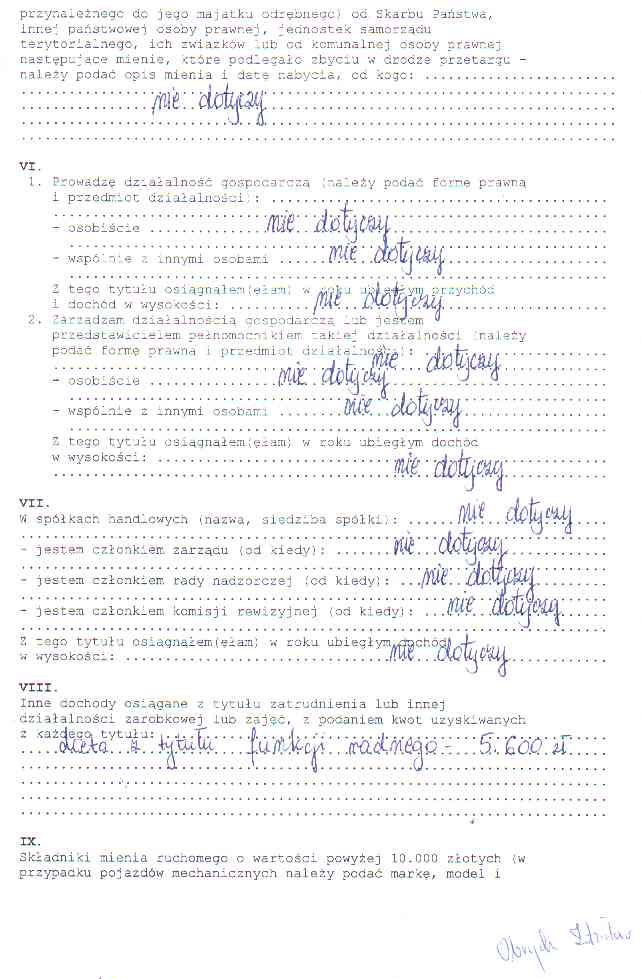 przynależnego do jego majątku odrębnego) od Skarbu Państwa,
innej państwowej osoby prawnej, jednostek samorządu
terytorialnego, ich związków lub od komunalnej osoby prawnej
następujące mienie, które podlegało zbyciu w drodze przetargu -
należy podać opis mienia i datę nabycia, od kogo: ........................
nie dotyczy
VI.
1. Prowadzę działalność gospodarczą (należy podać formę prawną
i przedmiot działalności): ..........................................
- osobiście ............... nie dotyczy
- wspólnie z innymi osobami ....... nie dotyczy
Z tego tytułu osiągnąłem(ęłam) w roku ubiegłym przychód
i dochód w wysokości: ............ nie dotyczy
2. Zarządzam działalnością gospodarczą lub jestem
przedstawicielem pełnomocnikiem takiej działalności (należy
podać formę prawną i przedmiot działalności): nie dotyczy
- osobiście ................ nie dotyczy
- wspólnie z innymi osobami ........ nie dotyczy
Z tego tytułu osiągnąłem(ęłam) w roku ubiegłym dochód
w wysokości: ............................. nie dotyczy
VII.
W spółkach handlowych (nazwa, siedziba spółki): ...... nie dotyczy
- jestem członkiem zarządu (od kiedy): ....... nie dotyczy
- jestem członkiem rady nadzorczej (od kiedy): ... nie dotyczy
- jestem członkiem komisji rewizyjnej (od kiedy): .... nie dotyczy
Z tego tytułu osiągnąłem(ęłam) w roku ubiegłym dochód
w wysokości: ................................. nie dotyczy
VIII.
Inne dochody osiągane z tytułu zatrudnienia lub innej
działalności zarobkowej lub zajęć, z podaniem kwot uzyskiwanych
z każdego tytułu: ........................................................
dieta z tytułu funkcji radnego - 5.600 zł
IX.
Składniki mienia ruchomego o wartości powyżej 10.000 złotych (w
przypadku pojazdów mechanicznych należy podać markę, model i